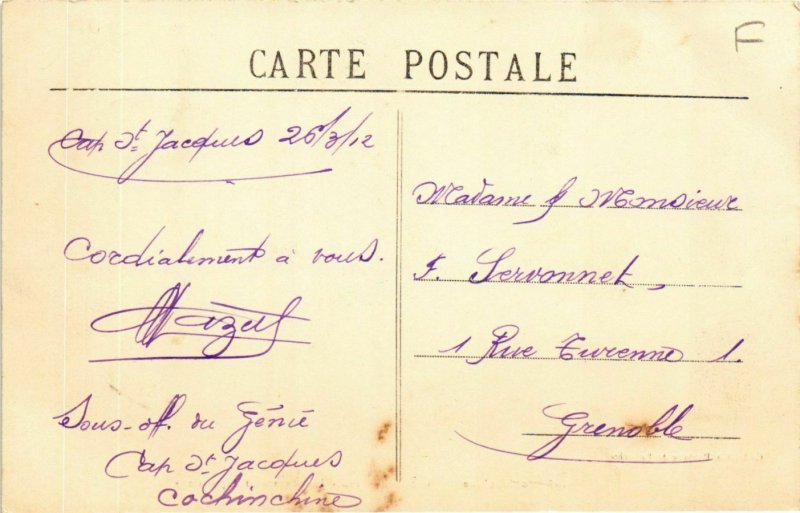 F
CARTE POSTALE
Cap St Jacques 26/3/12
Cordialement à vous.
Sous-off. du Génie
Cap St Jacques
Cochinchine
Madame & Monsieur
F. Servonnet,
1 Rue Turenne 1.
Grenoble